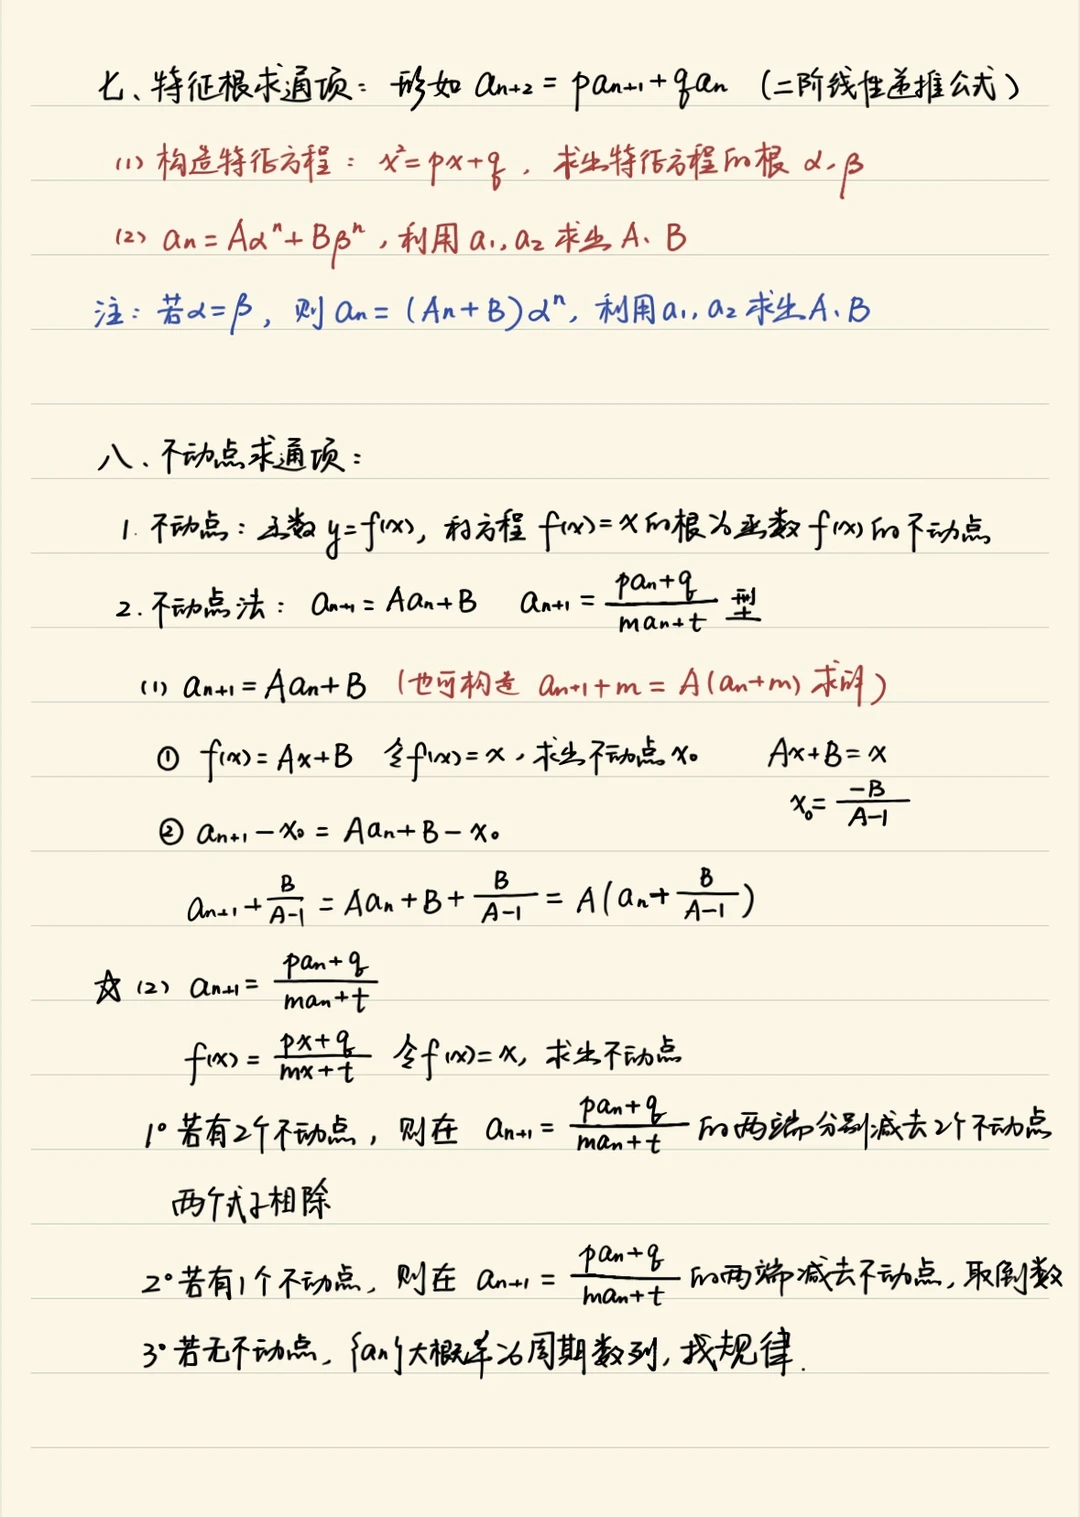 七、特征根求通项：形如 aₙ₊₂ = paₙ₊₁ + qaₙ （二阶线性递推公式）
(1) 构造特征方程：x² = px + q，求出特征方程的根 α、β
(2) aₙ = Aαⁿ + Bβⁿ，利用 a₁, a₂ 求出 A、B
注：若α=β，则 aₙ = (An + B)αⁿ，利用 a₁, a₂ 求出 A、B
八、不动点求通项：
1. 不动点：函数 y=f(x)，称方程 f(x)=x 的根为函数 f(x) 的不动点
2. 不动点法：aₙ₊₁ = Aaₙ + B  aₙ₊₁ = (paₙ+q)/(maₙ+t) 型
(1) aₙ₊₁ = Aaₙ + B （也可构造 aₙ₊₁ + m = A(aₙ + m) 求解）
① f(x) = Ax + B 令f(x)=x，求出不动点 x₀  Ax + B = x
x₀ = -B/(A-1)
② aₙ₊₁ - x₀ = Aaₙ + B - x₀
aₙ₊₁ + B/(A-1) = Aaₙ + B + B/(A-1) = A(aₙ + B/(A-1))
☆ (2) aₙ₊₁ = (paₙ+q)/(maₙ+t)
f(x) = (px+q)/(mx+t) 令f(x)=x，求出不动点
1° 若有2个不动点，则在 aₙ₊₁ = (paₙ+q)/(maₙ+t) 的两端分别减去2个不动点
两个式子相除
2° 若有1个不动点，则在 aₙ₊₁ = (paₙ+q)/(maₙ+t) 的两端减去不动点，取倒数
3° 若无不动点，{aₙ}大概率为周期数列，找规律.